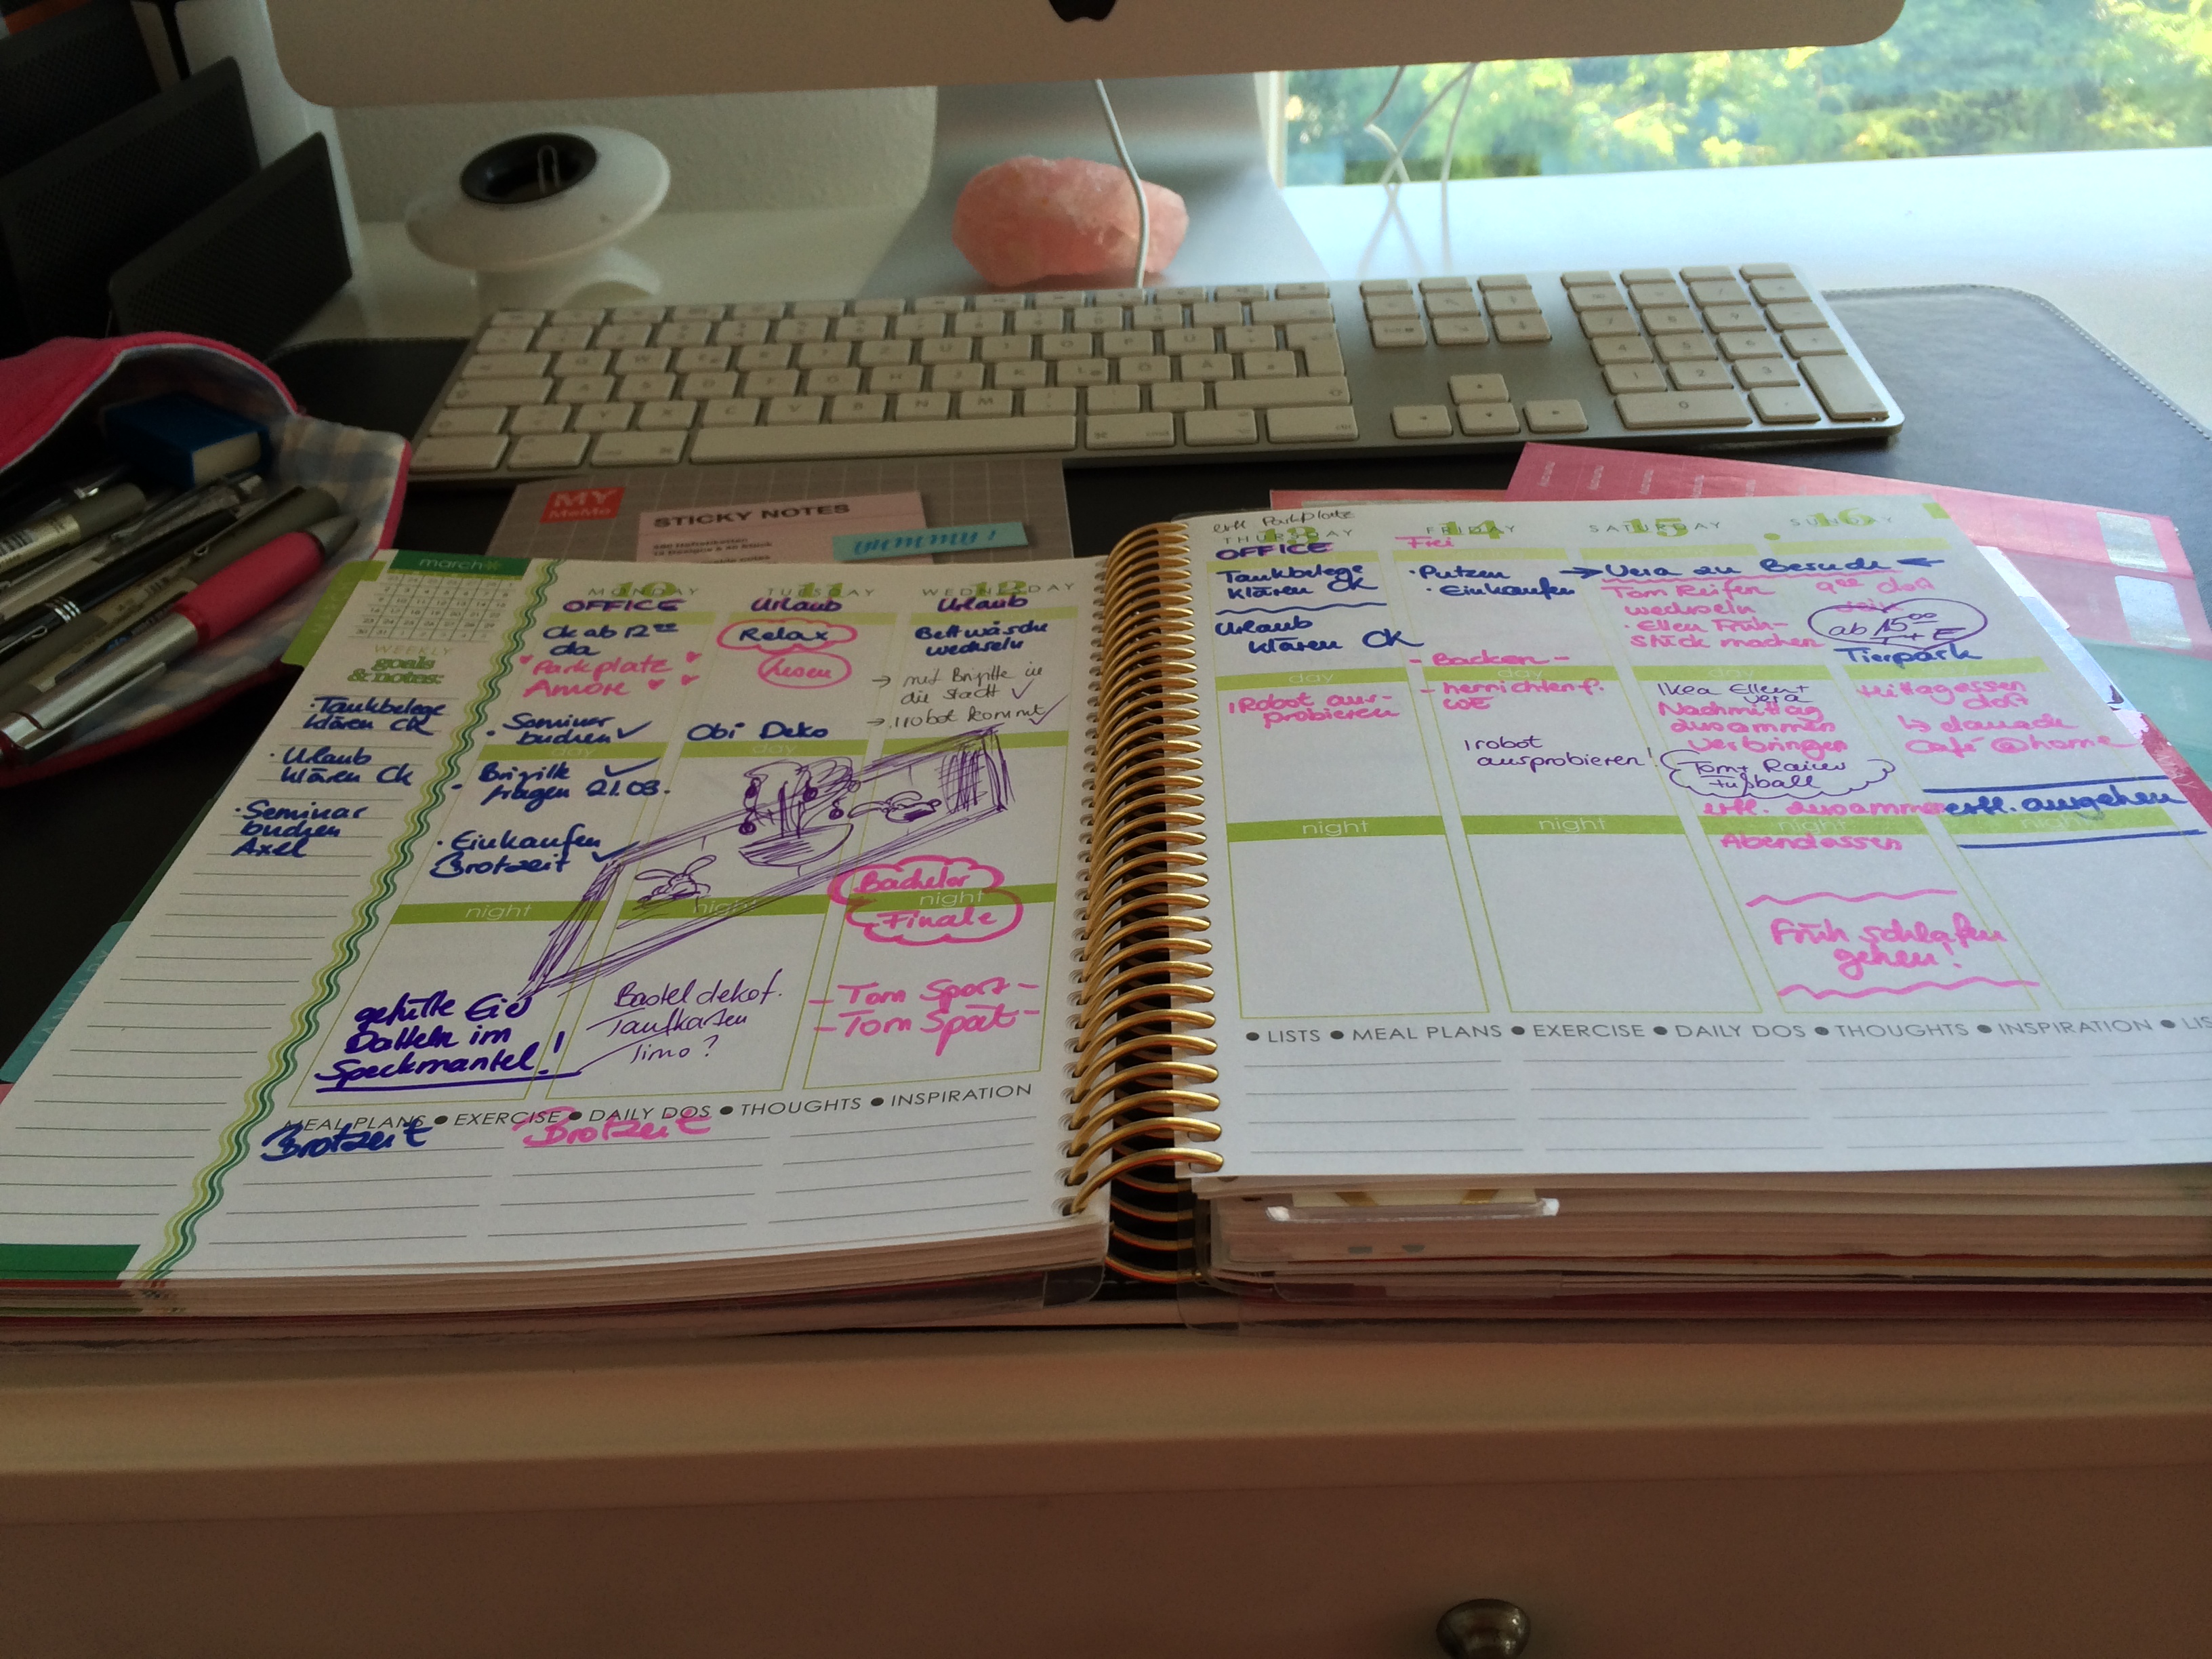 MY
MeMo
STICKY NOTES
march
WEEKLY
goals
& notes:
· Tankbelege
klären CK
· Urlaub
klären CK
· Seminar
buchen
Axel
MONDAY
10
OFFICE
CK ab 12 00
da
Parkplatz
Amore
· Seminar
buchen ✓
day
· Brigitte ✓
fragen 21.03.
· Einkaufen
Brotzeit ✓
night
gefüllte Eier
Datteln im
Speckmantel!
TUESDAY
11
Urlaub
Relax
Obi Deko
day
night
Bastel dekof.
Taufkarten
Timo?
WEDNESDAY
12
Urlaub
Bettwäsche
wechseln
→ mit Brigitte in
die Stadt ✓
→ irobot kommt ✓
Bachelor
night
Finale
- Tom Sport -
- Tom Spät -
MEAL PLANS ● EXERCISE ● DAILY DOS ● THOUGHTS ● INSPIRATION
Brotzeit
Brotzeit
evtl Parkplatz
THURSDAY
13
OFFICE
Tankbelege
klären CK
Urlaub
klären CK
day
iRobot aus-
probieren
night
FRIDAY
14
Frei
· Putzen
· Einkaufen
- Backen -
day
- herrichten f.
WE
irobot
ausprobieren!
night
SATURDAY
15
→ Vera zu Besuch ←
Tom Reifen
wechseln
· Ellen Früh-
stück machen
day
Ikea Ellen +
Vera
Nachmittag
zusammen
verbringen
Tom + Rainer
Fußball
evtl. zusammen
night
Abendessen
Früh schlafen
gehen!
SUNDAY
16
9 00 dort
sein
ab 15 00
T + E
Tierpark
Mittagessen
dort
↳ danach
Café @home
evtl. ausgehen
night
● LISTS ● MEAL PLANS ● EXERCISE ● DAILY DOS ● THOUGHTS ● INSPIRATION ● LIS